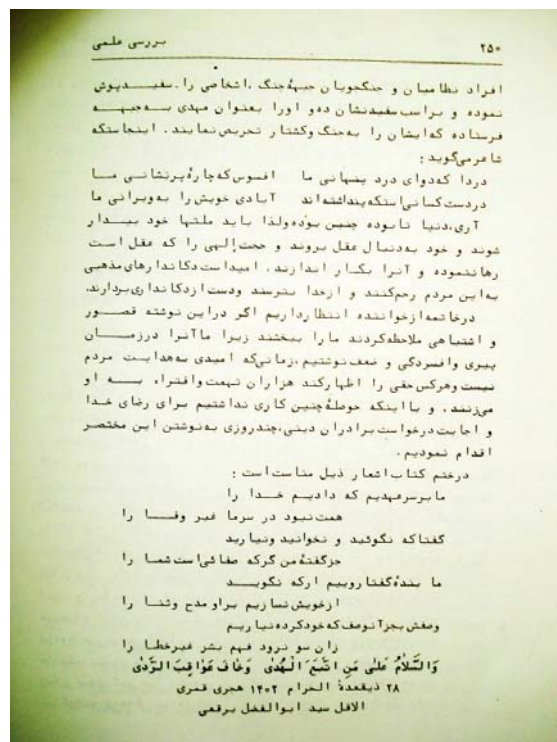 ۲۵۰
بررسی علمی
افراد نظامیان و جنگجویان جبههٔ جنگ ،اشخاصی را سفیدپوش
نموده و براسب سفیدنشان ده‌و اورا بعنوان مهدی به‌جبهه
فرستاده که‌ایشان را به‌جنگ وکشتار تحریص‌نمایند. اینجاستکه
شاعرمی‌گوید :
دردا که‌دوای درد پنهانی ما     افسوس که‌چارهٔ پرنشانی ما
دردست‌کسانی‌استکه‌پنداشته‌اند     آبادی خویش را به‌ویرانی ما
آری،دنیا تابوده چنین بوده‌ولذا باید ملتها خود بیدار
شوند و خود به‌دنبال عقل بروند و حجت‌إلهی را که عقل است
رهاننموده و آنرا بکار اندازند. امیداست‌دکاندارهای‌مذهبی
به‌این مردم رحم‌کنند و ازخدا بترسند ودست‌ازدکانداری‌بردارند.
درخاتمه‌ازخواننده انتظارداریم اگر دراین نوشته قصور
و اشتباهی ملاحظه‌کردند مارا ببخشند زیرا ماآنرا درزمان
پیری وافسردگی و ضعف‌نوشتیم،زمانی‌که امیدی به‌هدایت مردم
نیست‌وهرکس‌حقی را اظهارکند هزاران تهمت‌وافتراء به او
می‌زنند. و بااینکه حوصلهٔ‌چنین کاری نداشتیم برای رضای خدا
و اجابت‌درخواست‌برادران دینی،چندروزی به‌نوشتن این مختصر
اقدام نمودیم.
درختم کتاب‌اشعار ذیل مناسب‌است :
مابرسرعهدیم که دادیم خدا را
همت‌نبود در سرما غیر وفا را
گفتاکه نگوئید و نخوانید ونیارید
جزگفتهٔ‌من گرکه صفائی‌است‌شما را
ما بندهٔ‌گفتاروییم ارکه نگوید
ازخویش‌نسازیم براو مدح وثنا را
وصفش‌بجزآنوصف‌که‌خودکرده‌نیاریم
زان سو نرود فهم بشر غیرخطا را
وَالسَّلامُ عَلٰی مَنِ اتَّبَعَ الْهُدٰی وَخافَ عَوٰاقِبَ الرَّدٰی
۲۸ ذیقعدة الحرام ۱۴۰۲ هجری قمری
الاقل سید ابوالفضل برقعی